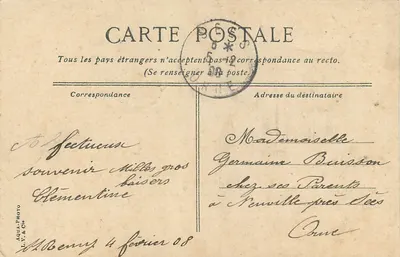 CARTE POSTALE
Tous les pays étrangers n'acceptent pas la correspondance au recto.
(Se renseigner à la poste.)
Correspondance
Adresse du destinataire
Affectueux
souvenir Milles gros
baisers
Clémentine
St Remy 4 février 08
Mademoiselle
Germaine Buisson
chez ses Parents
à Neuville près Sées
Orne
AQUA-PHOTO
L.V. & Cie
SÉES
ORNE